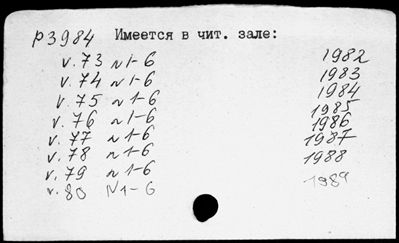 р3984 Имеется в чит. зале:
v.73 N1-6 1982
v.74 N1-6 1983
v.75 N1-6 1984
v.76 N1-6 1985
v.77 N1-6 1986
v.78 N1-6 1987
v.79 N1-6 1988
v.80 N1-6 1989